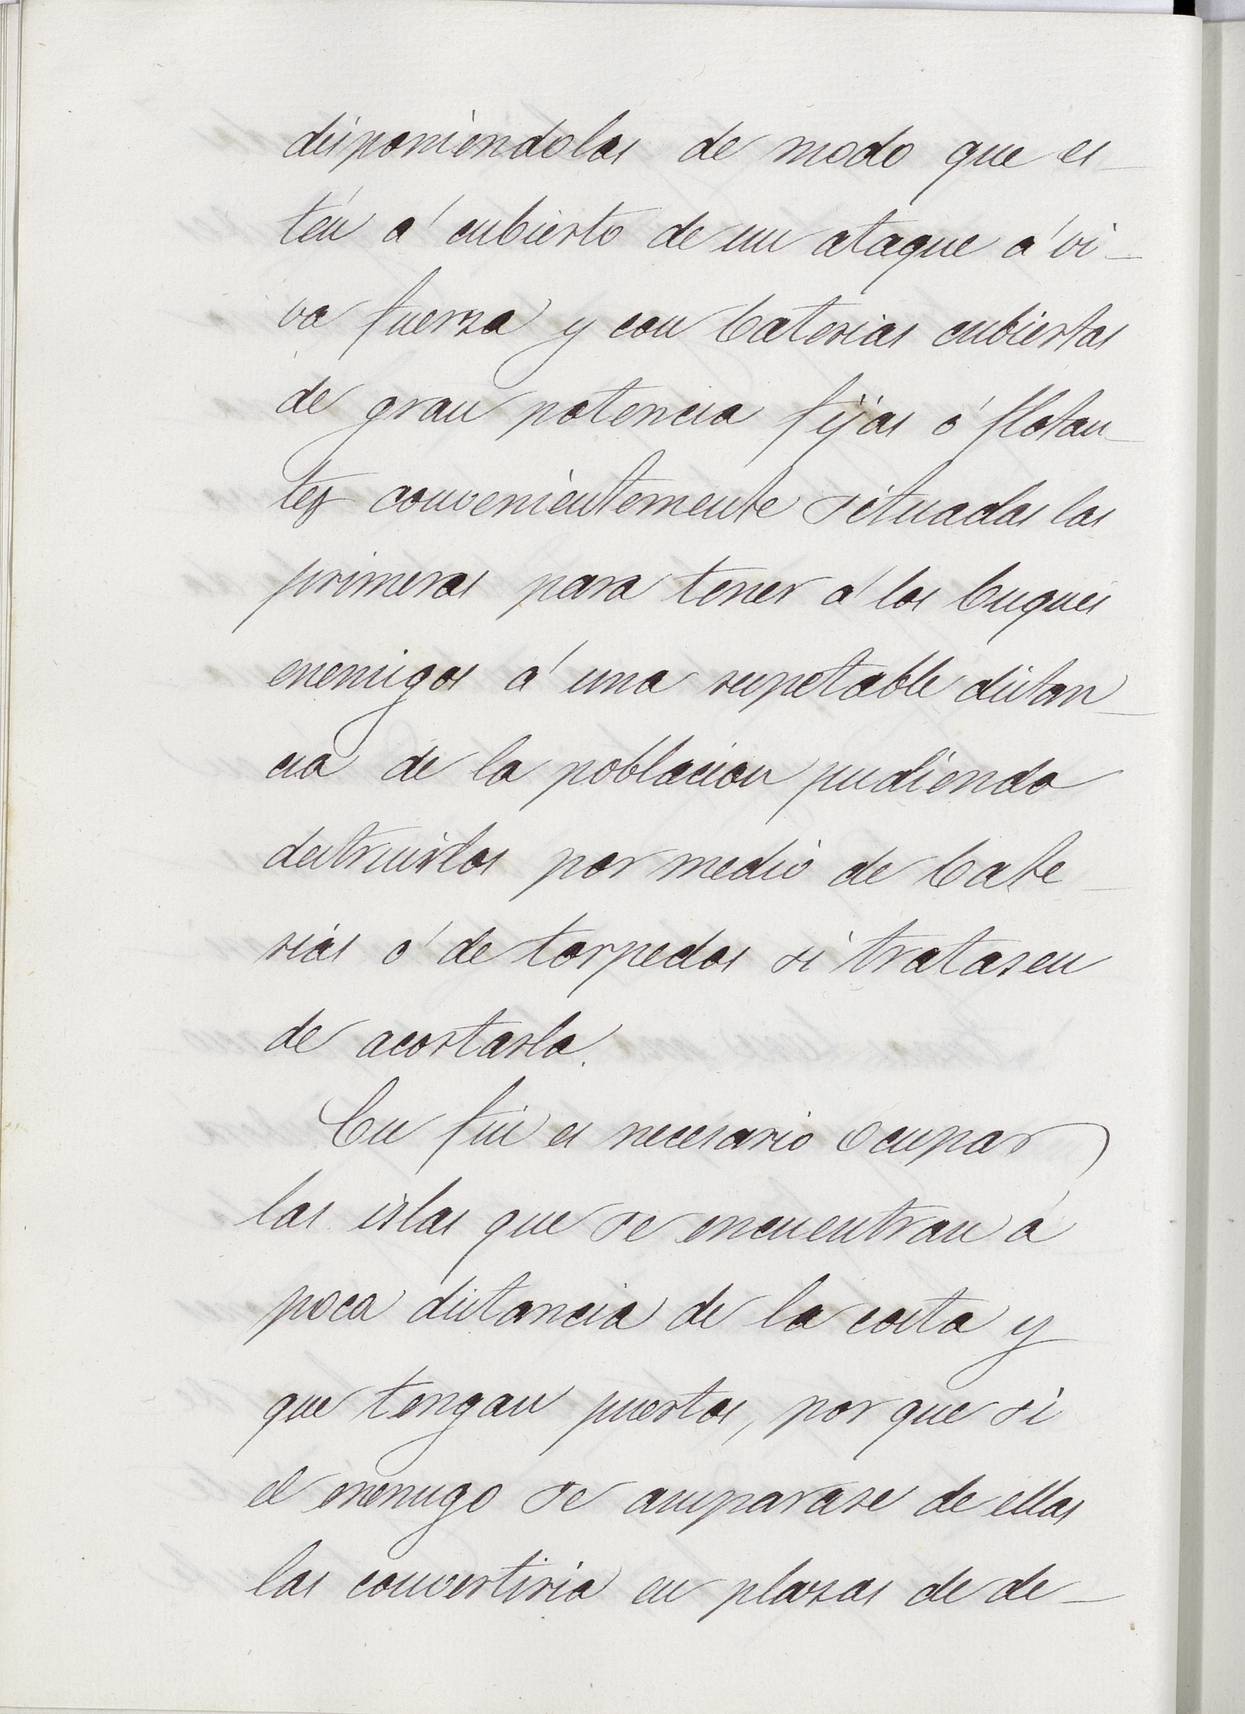 disponiéndolas de modo que es-
tén á cubierto de un ataque á vi-
va fuerza y con baterias cubiertas
de gran potencia fijas ó flotan-
tes convenientemente situadas las
primeras para tener á los buques
enemigos á una respetable distan-
cia de la poblacion pudiendo
destruirlos por medio de bate-
rias ó de torpedos si tratasen
de acortarla.
En fin es necesario ocupar
las islas que se encuentran á
poca distancia de la costa y
que tengan puertos, por que si
el enemigo se amparase de ellas
las convertiria en plazas de de-